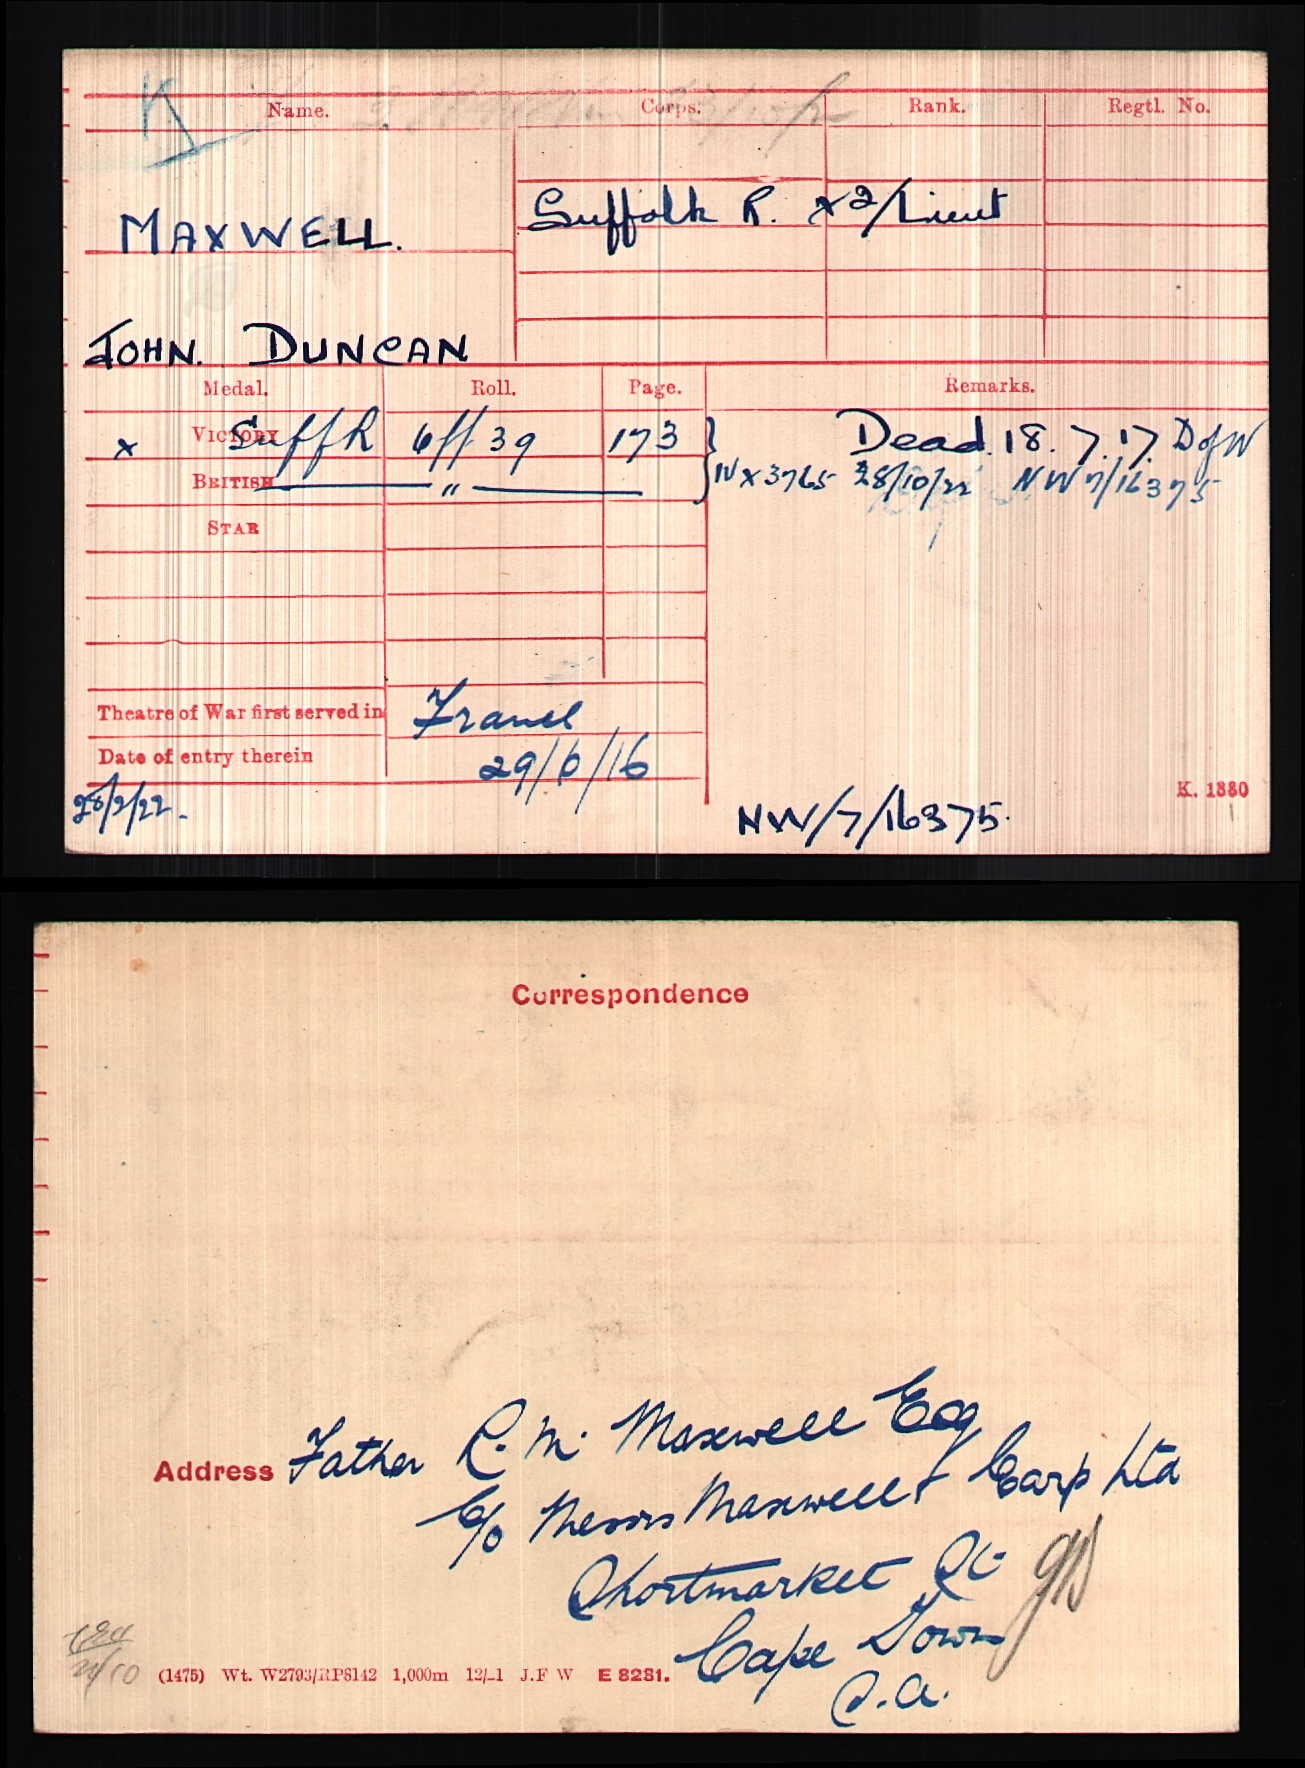 K
Name. Corps. Rank. Regtl. No.
Suffolk R. x2/Lieut
MAXWELL.
JOHN. DUNCAN
Medal. Roll. Page. Remarks.
x VICTORY Suff R Off 39 173 } Dead. 18. 7. 17. D of W
BRITISH " IV x 3765 28/10/22 NW 7/16375
STAR
Theatre of War first served in France
Date of entry therein 29/6/16
K. 1380
28/2/22. NW/7/16375.
Correspondence
Address Father R. M. Maxwell Esq
C/o Messrs Maxwell & Earp Ltd
Shortmarket St
Cape Town
(1475) Wt. W2793/RP8142 1,000m 12/-1 J.F W E 8281.
S.A.